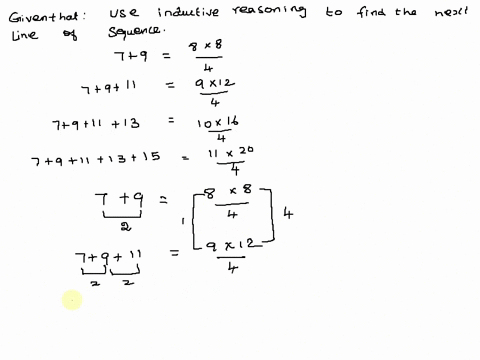 Given that: Use inductive reasoning to find the next
line of sequence.
7+9 = 8×8/4
7+9+11 = 9×12/4
7+9+11+13 = 10×16/4
7+9+11+13+15 = 11×20/4
7+9 = 8×8/4
2 1 4
7+9+11 = 9×12/4
2 2